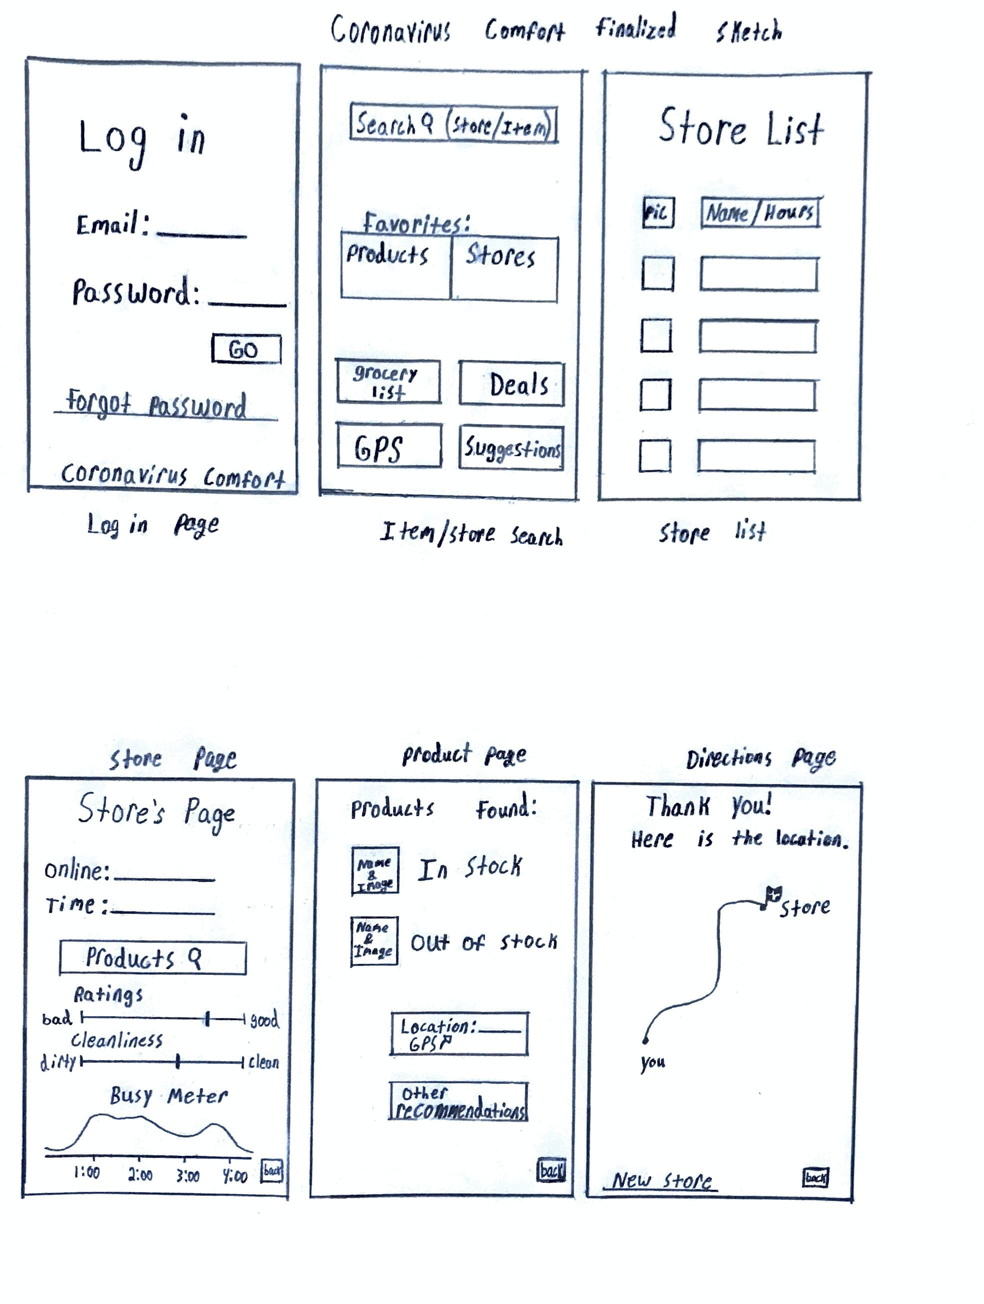 Coronavirus Comfort Finalized Sketch
Log in
Email:
Password:
GO
Forgot Password
Coronavirus Comfort
Log in Page
Search (Store/Item)
Favorites:
Products
Stores
grocery
list
Deals
GPS
Suggestions
Item/Store Search
Store List
Pic
Name/Hours
Store list
Store Page
Store's Page
Online:
Time:
Products
Ratings
bad
good
Cleanliness
dirty
clean
Busy Meter
1:00 2:00 3:00 4:00
back
Product Page
Products Found:
Name
&
Image
In Stock
Name
&
Image
Out of Stock
Location:
GPS
Other
recommendations
back
Directions Page
Thank You!
Here is the location.
Store
you
New Store
back